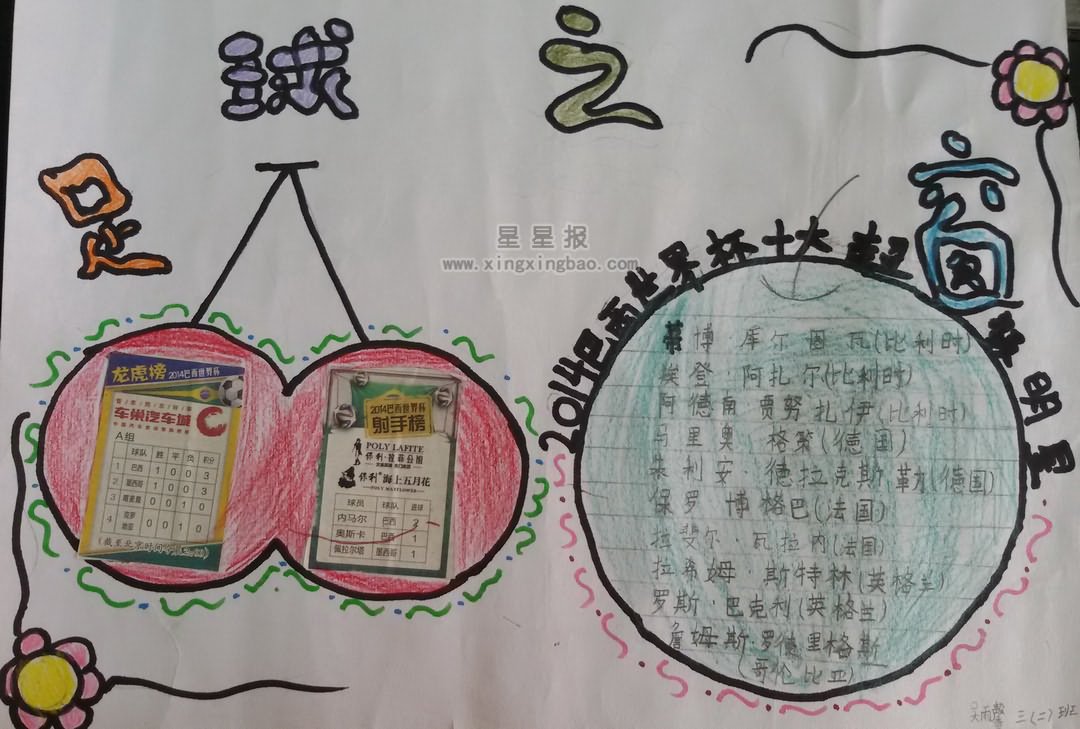 足球之窗
星星报
www.xingxingbao.com
龙虎榜 2014巴西世界杯
车巢汽车城
A组
球队 胜 平 负 积分
1 巴西 1 0 0 3
2 墨西哥 1 0 0 3
3 喀麦隆 0 0 1 0
4 克罗地亚 0 0 1 0
2014巴西世界杯
射手榜
POLY LAFITE
保利·拉菲公馆
保利 海上五月花
POLY MAYFLOWER
球员 球队 进球
内马尔 巴西 2
奥斯卡 巴西 1
佩拉尔塔 墨西哥 1
2014巴西世界杯十大超新明星
莱博 库尔图瓦(比利时)
埃登·阿扎尔(比利时)
阿德南 贾努扎伊(比利时)
马里奥 格策(德国)
朱利安 德拉克斯勒尔(德国)
保罗 博格巴(法国)
拉斐尔·瓦拉内(法国)
拉希姆·斯特林(英格兰)
罗斯·巴克利(英格兰)
詹姆斯·罗德里格斯
(哥伦比亚)
吴雨馨 三(二)班